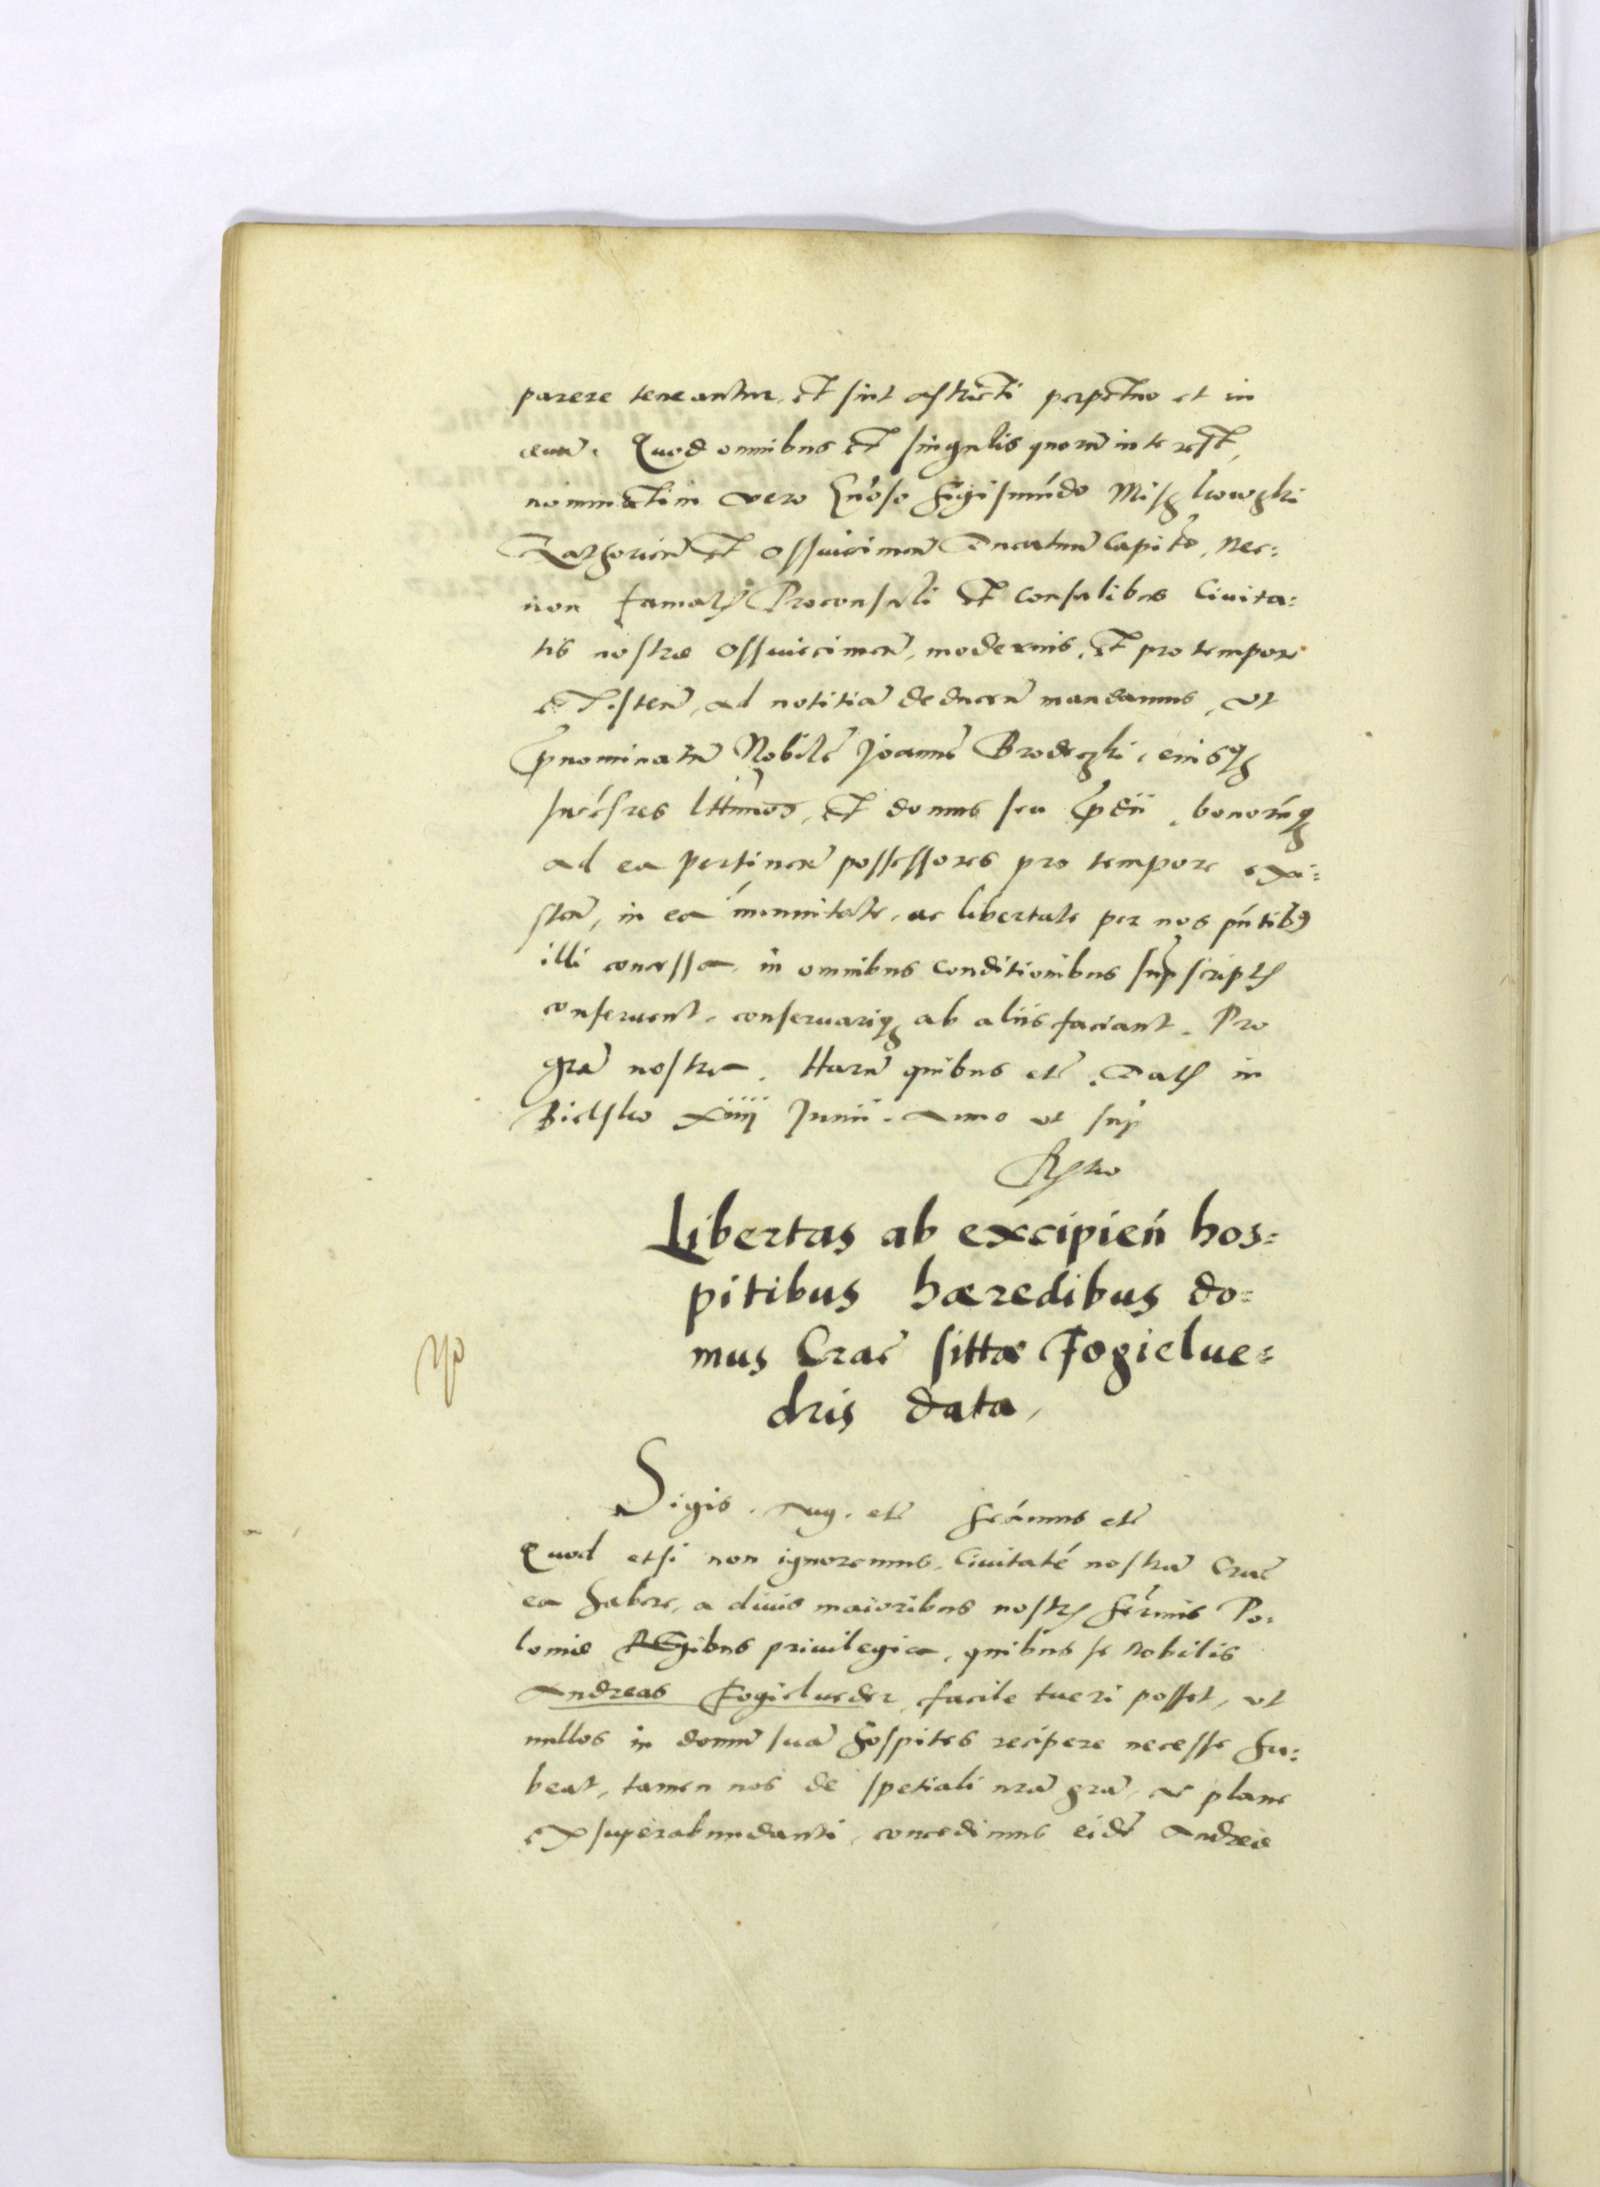 parere teneantur, et sint astricti perpetuo et in
eum̃. Quod omnibus et singulis quorum̃ interest,
nominatim vero Gn̄oso Sigismũdo Miszkowski
Zathorien̄ et Osswiecimen̄ Ducatum Capit̄o, nec=
non famat̄ Proconsuli et consulibus Ciuita=
tis nostrae Osswiecimen̄, modernis, et pro tempore
existen̄, ad notitiã deducen̄ mandamus, vt
p̄nominatũ Nobilẽ Joannẽ Brodeczki, eiusq̃
succ̃sores l̃ttimos, et domus seu p̄dii, bonorũq̃
ad ea pertinen̄ possessores pro tempore exi=
sten̄, in ea ĩmunitate, ac libertate per nos p̄ntibus
illi concessa, in omnibus conditionibus sup̄script̄
conseruent, conseruariq̃ ab aliis faciant. Pro
gr̄a nostra. Harũ quibus etc̄. Dat̄ in
Bielsko xiiii Junii. Anno vt sup̄
Libertas ab excipień hos=
pitibus haeredibus do=
mus Crac̄ sittae Fogielue=
dris data,
Sigis. Aug. etc̄ etc̄
Quod etsi non ignoremus, Ciuitatẽ nostrã Crac̄
ea habere, a diuis maioribus nostr̄ Ser̄mis Po=
loniae Regibus priuilegia, quibus se Nobilis
Andreas Fogielueder, facile tueri posset, vt
nullos in domũ suã hospites recipere necesse ha=
beat, tamen nos de spetiali nr̄a gr̄a, ac plane
ex superabundanti, concedimus eidẽ Andreae